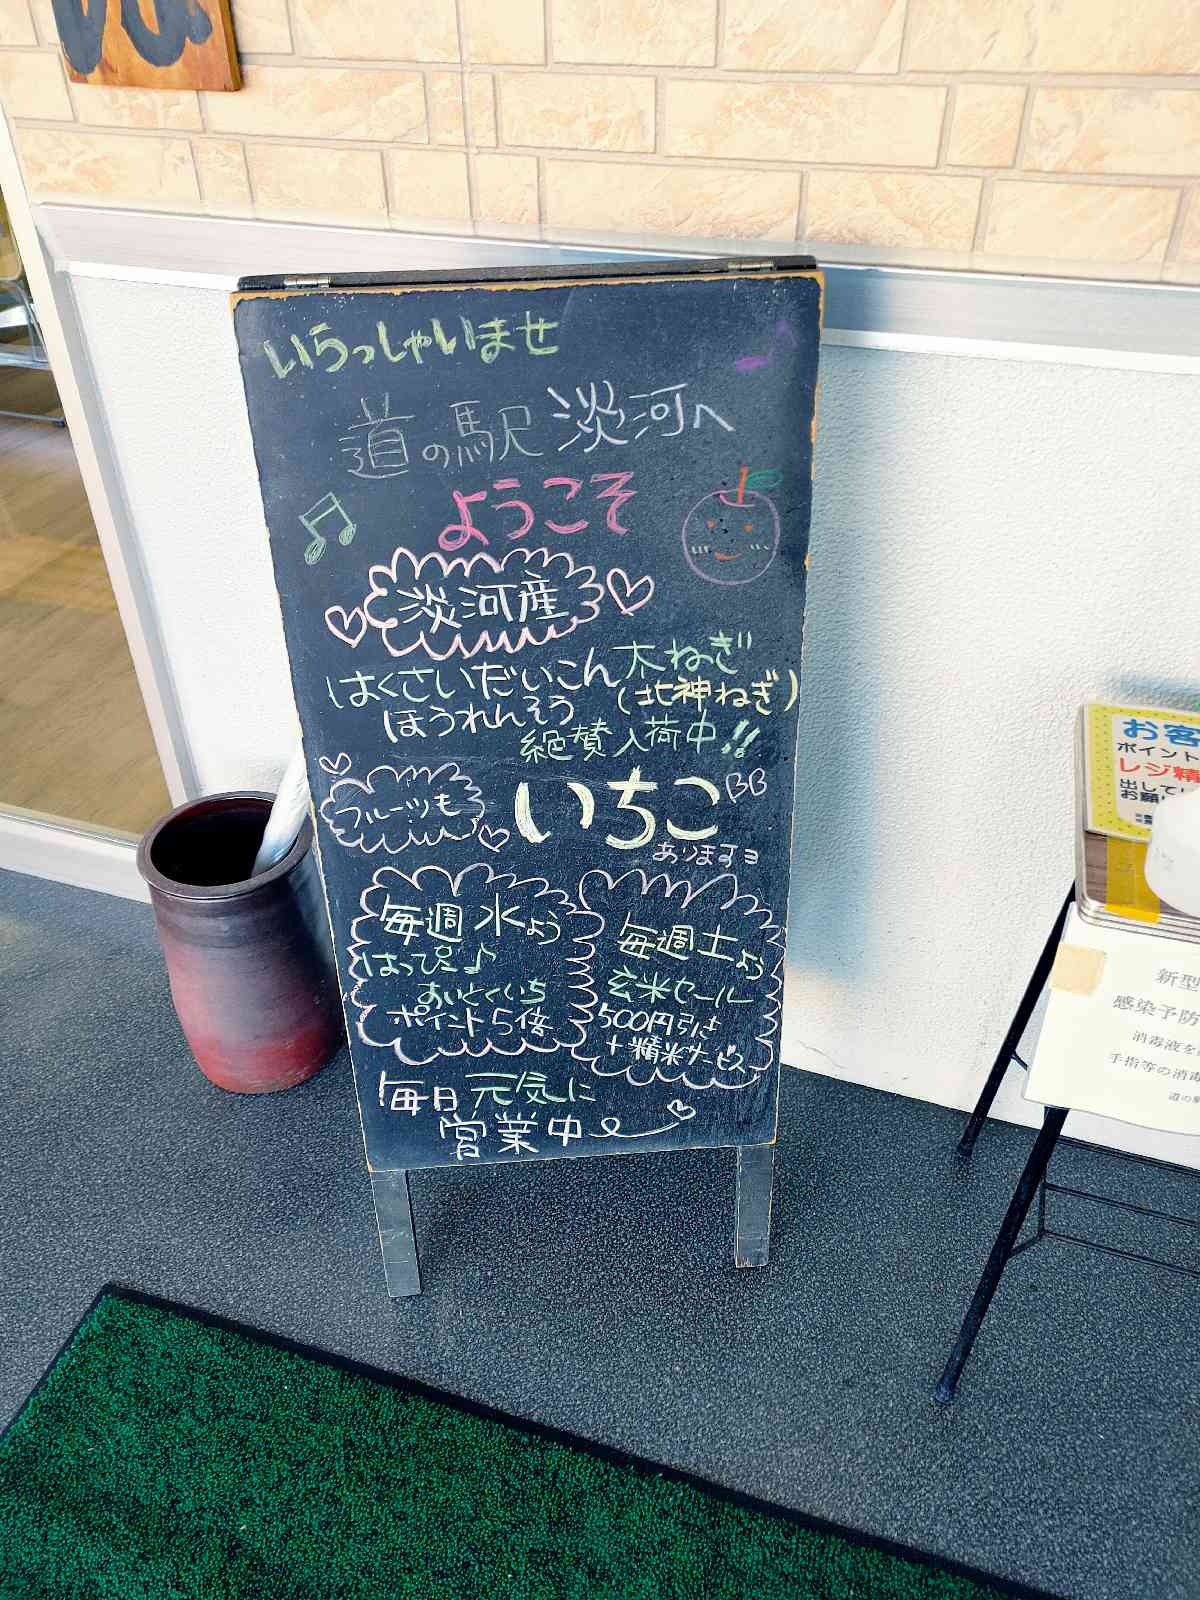 いらっしゃいませ
道の駅 淡河へ
ようこそ
淡河産
はくさい だいこん 太ねぎ
ほうれんそう (北神ねぎ)
絶賛入荷中!!
フルーツも いちご
ありますヨ
毎週水よう
はっぴ
あいとくいち
ポイント5倍
毎週土よう
玄米セール
500円引き
+精米サービス
毎日元気に
営業中
お客
ポイント
レジ精
出してい
お願い
新型
感染予防
消毒液を
手指等の消毒
道の駅